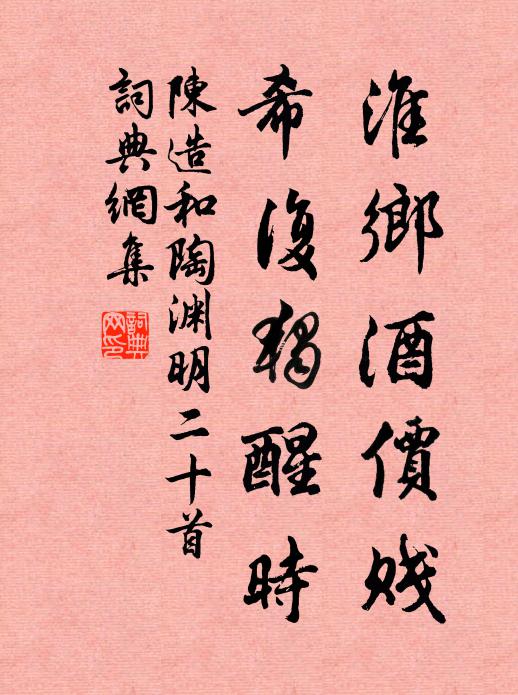 淮鄉酒價賤
希復獨醒時
陳造和陶淵明二十首
詞典網集
詞典網印